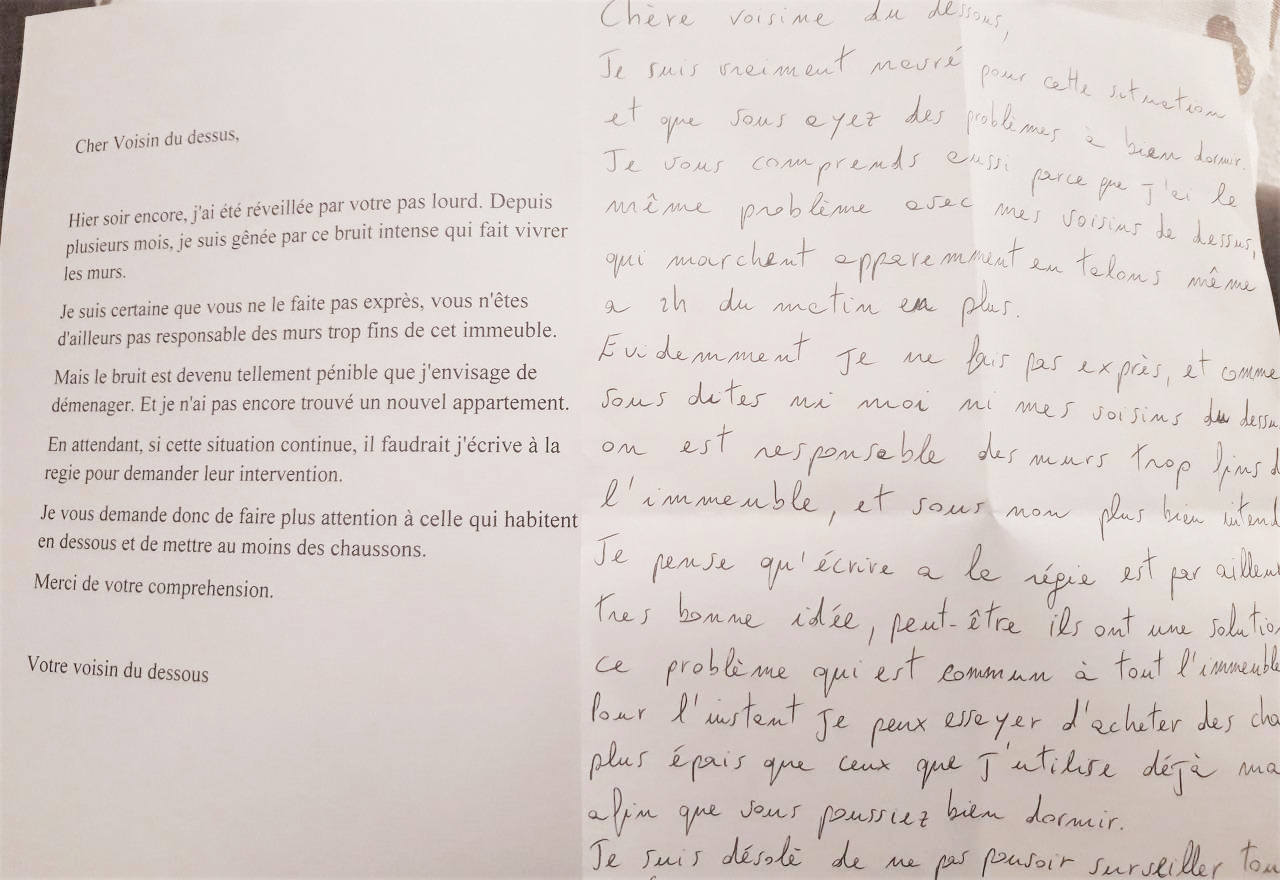 Cher Voisin du dessus,
Hier soir encore, j'ai été réveillée par votre pas lourd. Depuis
plusieurs mois, je suis gênée par ce bruit intense qui fait vivrer
les murs.
Je suis certaine que vous ne le faite pas exprès, vous n'êtes
d'ailleurs pas responsable des murs trop fins de cet immeuble.
Mais le bruit est devenu tellement pénible que j'envisage de
démenager. Et je n'ai pas encore trouvé un nouvel appartement.
En attendant, si cette situation continue, il faudrait j'écrive à la
regie pour demander leur intervention.
Je vous demande donc de faire plus attention à celle qui habitent
en dessous et de mettre au moins des chaussons.
Merci de votre comprehension.
Votre voisin du dessous
Chère voisine du dessous,
Je suis vraiment navré pour cette situation
et que vous ayez des problèmes à bien dormir.
Je vous comprends aussi parce que j'ai le
même problème avec mes voisins de dessus,
qui marchent apparemment en talons même
a 2h du matin en plus.
Evidemment je ne fais pas exprès, et comme
vous dites ni moi ni mes voisins du
on est responsable des murs trop fins
l'immeuble, et vous non plus bien
Je pense qu'écrire a la régie est par
tres bonne idée, peut-être ils ont une
ce problème qui est commun à tout
Pour l'instant je peux essayer d'acheter des
plus épais que ceux que j'utilise déjà
afin que vous poussiez bien dormir.
Je suis désolè de ne pas pouvoir surveiller